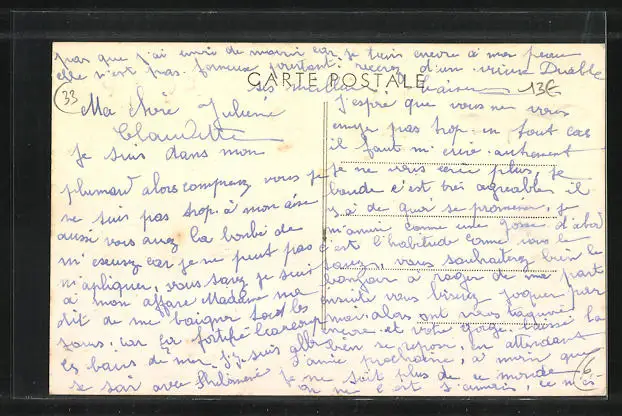 pas que j'ai envi de mourir car je tien encore à mon peau
elle n'est pas fameuse pourtant. recevez d'un vieux Diable
CARTE POSTALE
ses meilleurs baisers 13€
33
Ma chère Julienne
Claudette
Je suis dans mon
plumard alors comprenez vous je
ne suis pas trop à mon aise
aussi vous avez la bonté de
m'escusez car je ne peut pas
m'apliquer, vous savez je suis
à mon affaire Madame ma
dit de me baigner tous les
jours car ça fortifie beaucoup
les bains de mer. j'y suis allé
se soir avec Philomène
J'espre que vous ne vous
ennuye pas trop en tout cas
il faut m'ecrire autrement
je ne vous écrie plus, Je
boude c'est très agréable il
y a de quoi se promener, je
m'amuse comme une gosse d'abord
c'est l'habitude comme vous le
savez, vous souhaiterez bien le
bonjour à Roger de ma part
ensuite vous
mais alors ont vous
encore et votre
bien se repose en attendant
l'année prochaine, à moin que
je ne soit plus de ce monde
on ne sait jamais, ce n'es
6